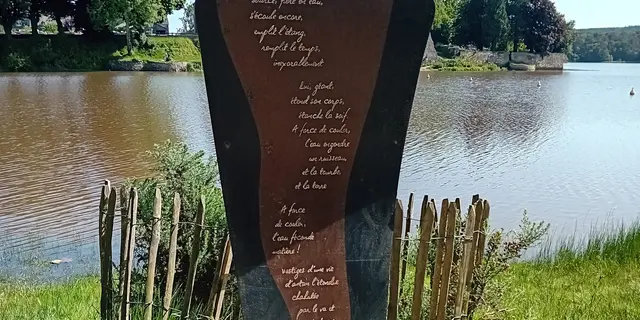 source, père de eau,
s'écoule encore,
emplit l'étang,
remplit le temps,
inexorablement
Lui, géant,
étend son corps,
étanche la soif.
A force de couler,
l'eau engendre
un ruisseau,
et la tourbe
et la terre
A force
de couler,
l'eau féconde
matière !
vestiges d'une vie
d'antan
chaluté
par le va et